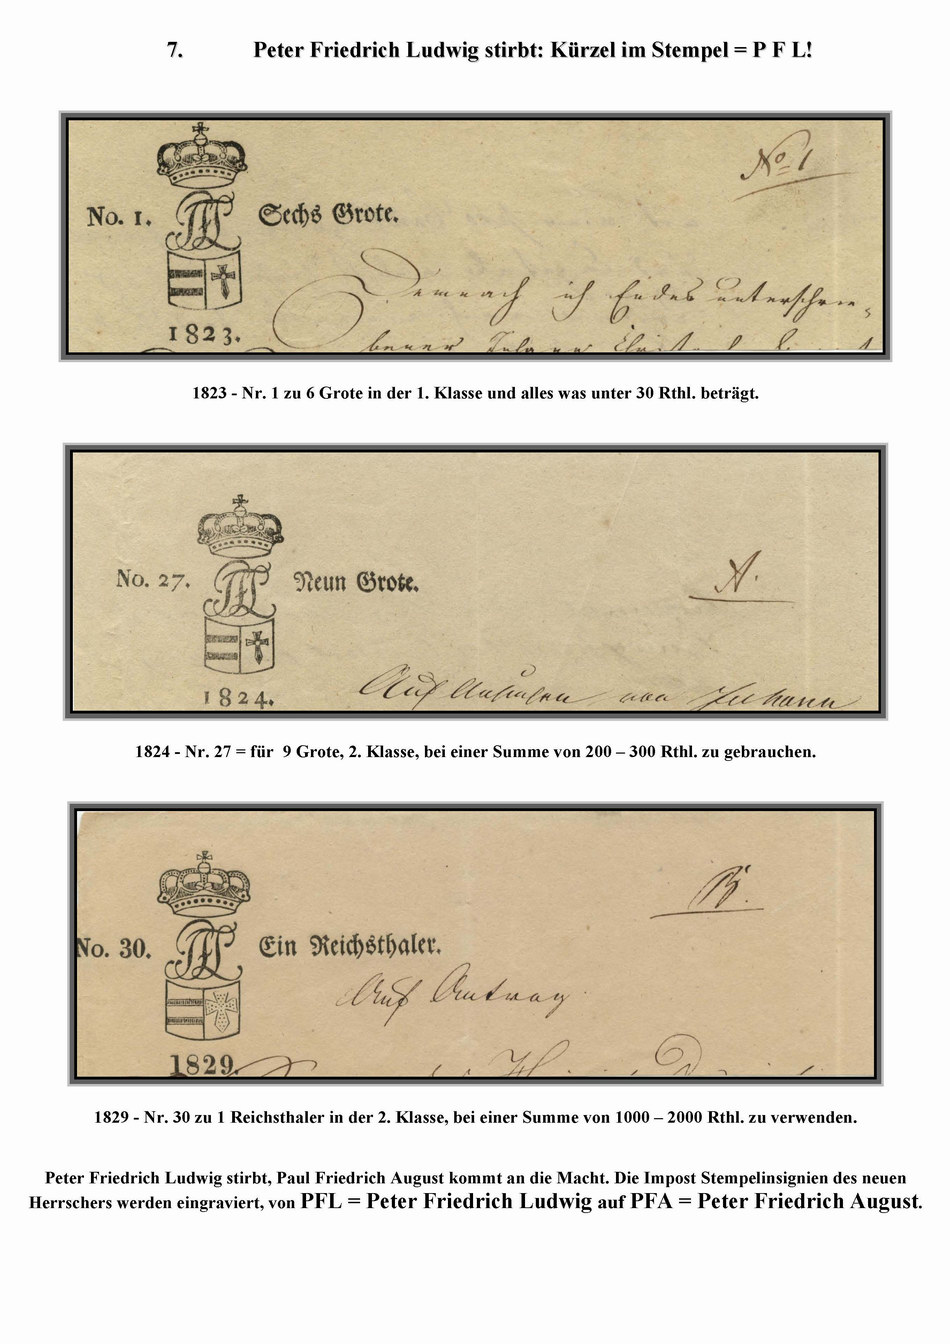 7. Peter Friedrich Ludwig stirbt: Kürzel im Stempel = P F L!
No 1
No. 1. PFL Sechs Grote.
Demnach ich Endes unterschrie-
bener
1823.
1823 - Nr. 1 zu 6 Grote in der 1. Klasse und alles was unter 30 Rthl. beträgt.
A.
No. 27. PFL Neun Grote.
Auf Ansuchen von Johann
1824.
1824 - Nr. 27 = für 9 Grote, 2. Klasse, bei einer Summe von 200 – 300 Rthl. zu gebrauchen.
B.
No. 30. PFL Ein Reichsthaler.
Auf Antrag
1829.
1829 - Nr. 30 zu 1 Reichsthaler in der 2. Klasse, bei einer Summe von 1000 – 2000 Rthl. zu verwenden.
Peter Friedrich Ludwig stirbt, Paul Friedrich August kommt an die Macht. Die Impost Stempelinsignien des neuen
Herrschers werden eingraviert, von PFL = Peter Friedrich Ludwig auf PFA = Peter Friedrich August.